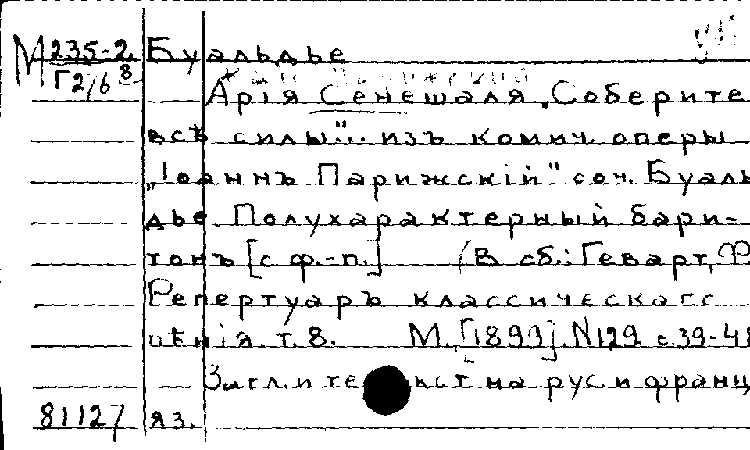 М 235-2. Буальдье
Г2/6 8
Арія Сенешаля „Соберите
всѣ силы". изъ комич. оперы
„Іоаннъ Парижскій" соч. Буаль
дье. Полухарактерный бари-
тонъ [с ф.-п.] (В сб.: Геварт, Ф
Репертуаръ классическаго
пѣнія. т. 8. М. [1899]. N129 с. 39-48
Загл. и текст на рус и франц
81127 яз.